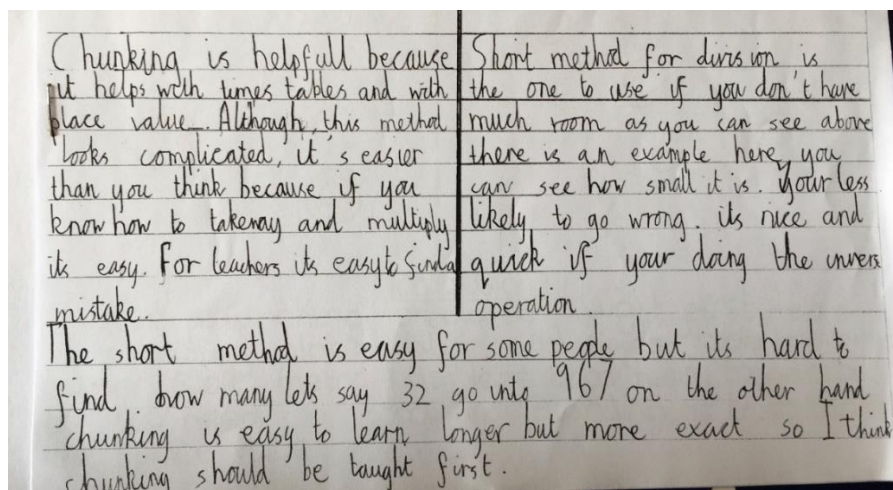 Chunking is helpfull because
it helps with times tables and with
place value. Although, this method
looks complicated, it's easier
than you think because if you
know how to takeway and multiply
its easy. For teachers its easy to find a
mistake.
Short method for division is
the one to use if you don't have
much room as you can see above
there is an example here, you
can see how small it is. Your less
likely to go wrong. its nice and
quick if your doing the invers
operation.
The short method is easy for some people but its hard to
find how many lets say 32 go into 967 on the other hand
chunking is easy to learn longer but more exact so I think
chunking should be taught first.